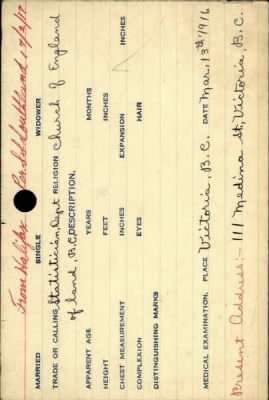 From Halifax Per SS Southland 17/2/17
MARRIED SINGLE WIDOWER
TRADE OR CALLING Statistician, Dept RELIGION Church of England
of land, B.C. DESCRIPTION.
APPARENT AGE YEARS MONTHS
HEIGHT FEET INCHES
CHEST MEASUREMENT INCHES EXPANSION INCHES
COMPLEXION EYES HAIR
DISTINGUISHING MARKS
MEDICAL EXAMINATION. PLACE Victoria, B.C. DATE Mar. 13th 1916
Present Address:- 111 Medina St, Victoria, B.C.